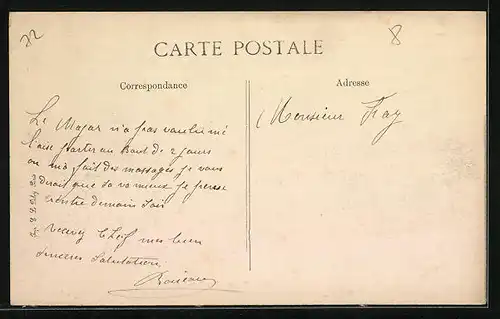 22
8
CARTE POSTALE
Correspondance
Adresse
Le Major n'a pas voulu me
laisé partir au Bout de 2 jours
on ma fait des massages je vous
dirait que sa va mieux je pense
rentré demain soir
Recevez mes bien
sinceres Salutation
Monsieur Fay